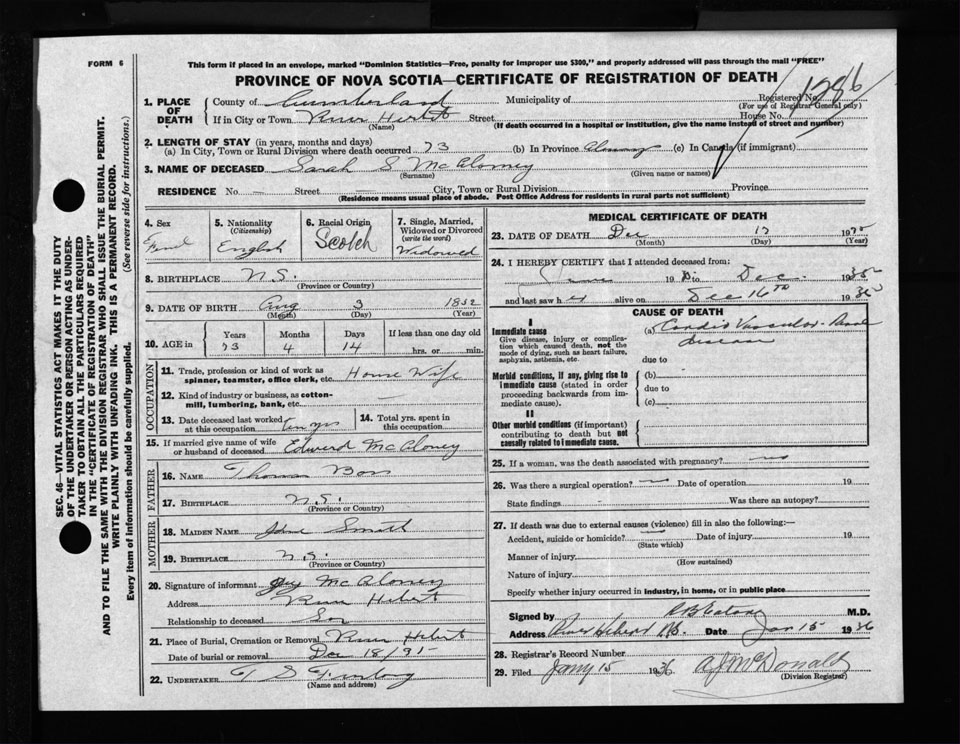 FORM 6
This form if placed in an envelope, marked "Dominion Statistics—Free, penalty for improper use $300," and properly addressed will pass through the mail "FREE"
PROVINCE OF NOVA SCOTIA—CERTIFICATE OF REGISTRATION OF DEATH
1286
1. PLACE OF DEATH
County of Cumberland Municipality of Registered No.
(For use of Registrar General only)
If in City or Town River Hebert Street House No.
(Name) (If death occurred in a hospital or institution, give the name instead of street and number)
2. LENGTH OF STAY (in years, months and days)
(a) In City, Town or Rural Division where death occurred 73 (b) In Province (c) In Canada (if immigrant)
3. NAME OF DECEASED Sarah S McAloney
(Surname) (Given name or names)
RESIDENCE No. — Street — City, Town or Rural Division Province
(Residence means usual place of abode. Post Office Address for residents in rural parts not sufficient)
4. Sex
5. Nationality (Citizenship) English
6. Racial Origin Scotch
7. Single, Married, Widowed or Divorced (write the word) Widowed
8. BIRTHPLACE N.S.
(Province or Country)
9. DATE OF BIRTH Aug 3
(Month) (Day) (Year)
10. AGE in Years Months Days If less than one day old
73 4 14 hrs. or min.
OCCUPATION
11. Trade, profession or kind of work as spinner, teamster, office clerk, etc. House Wife
12. Kind of industry or business, as cotton-mill, lumbering, bank, etc. —
13. Date deceased last worked at this occupation
14. Total yrs. spent in this occupation
15. If married give name of wife or husband of deceased Edward McAloney
FATHER
16. NAME Thomas
17. BIRTHPLACE N.S.
(Province or Country)
MOTHER
18. MAIDEN NAME Smith
19. BIRTHPLACE N.S.
(Province or Country)
20. Signature of informant McAloney
Address River Hebert
Relationship to deceased Son
21. Place of Burial, Cremation or Removal River Hebert
Date of burial or removal Dec 18/
22. UNDERTAKER T S
(Name and address)
MEDICAL CERTIFICATE OF DEATH
23. DATE OF DEATH Dec 17 19
(Month) (Day) (Year)
24. I HEREBY CERTIFY that I attended deceased from:
19 to Dec. 19
and last saw her alive on Dec 16TH 19
CAUSE OF DEATH
I
Immediate cause
Give disease, injury or complication which caused death, not the mode of dying, such as heart failure, asphyxia, asthenia, etc.
(a) Cardio Vascular-Renal disease
due to
Morbid conditions, if any, giving rise to immediate cause (stated in order proceeding backwards from immediate cause).
(b)
due to
(c)
II
Other morbid conditions (if important) contributing to death but not causally related to immediate cause.
25. If a woman, was the death associated with pregnancy? no
26. Was there a surgical operation? no Date of operation 19
State findings Was there an autopsy?
27. If death was due to external causes (violence) fill in also the following:—
Accident, suicide or homicide? Date of injury 19
(State which)
Manner of injury
(How sustained)
Nature of injury
Specify whether injury occurred in industry, in home, or in public place
Signed by M.D.
Address River Hebert N.S. Date Jan 15 1936
28. Registrar's Record Number
29. Filed Jany 15 1936 A J McDonald
(Division Registrar)
SEC. 46—VITAL STATISTICS ACT MAKES IT THE DUTY
OF THE UNDERTAKER OR PERSON ACTING AS UNDER-
TAKER TO OBTAIN ALL THE PARTICULARS REQUIRED
IN THE "CERTIFICATE OF REGISTRATION OF DEATH"
AND TO FILE THE SAME WITH THE DIVISION REGISTRAR WHO SHALL ISSUE THE BURIAL PERMIT.
WRITE PLAINLY WITH UNFADING INK. THIS IS A PERMANENT RECORD.
Every item of information should be carefully supplied. (See reverse side for instructions.)